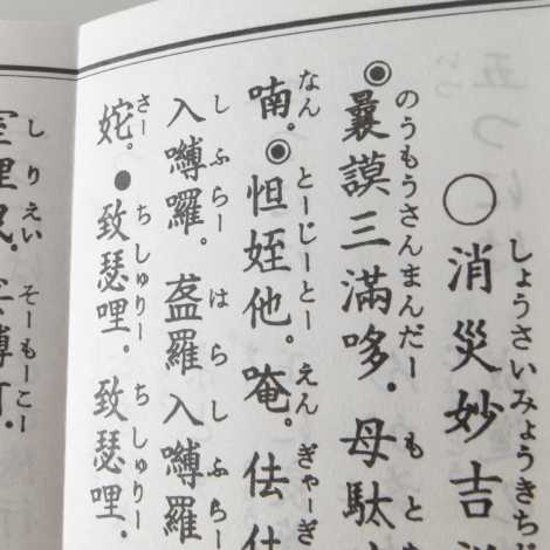 しょうさいみょうきち
○消災妙吉
のうもうさんまんだー もと
◉曩謨三滿哆。母駄
なん とーじーとー えん ぎゃーぎ
喃。◉怛姪他。唵。佉
しふらー はらしふらー
入嚩囉。盋羅入嚩囉
さー ちしゅりー ちしゅりー
●致瑟哩。致瑟哩。
しりえい そーもーこー